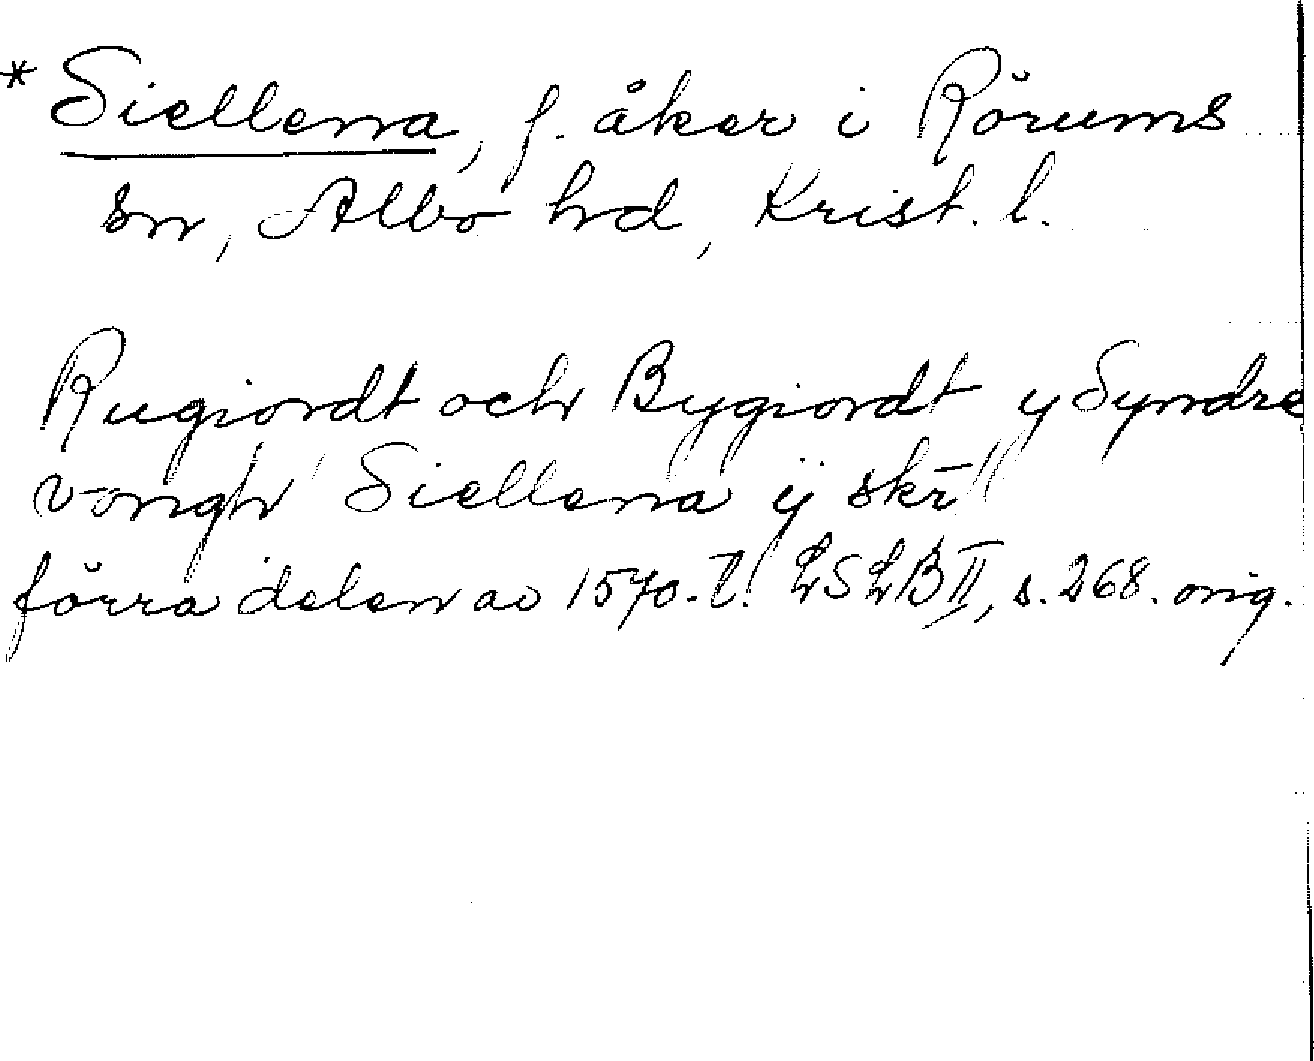 * Siellenna, f. åker i Rörums
sn, Albo hd, Krist. l.
Rugiordt och Bygiordt y Syndre
vongh Siellenna ij skr
förra delen av 1570-t. LSLB II, s. 268. orig.